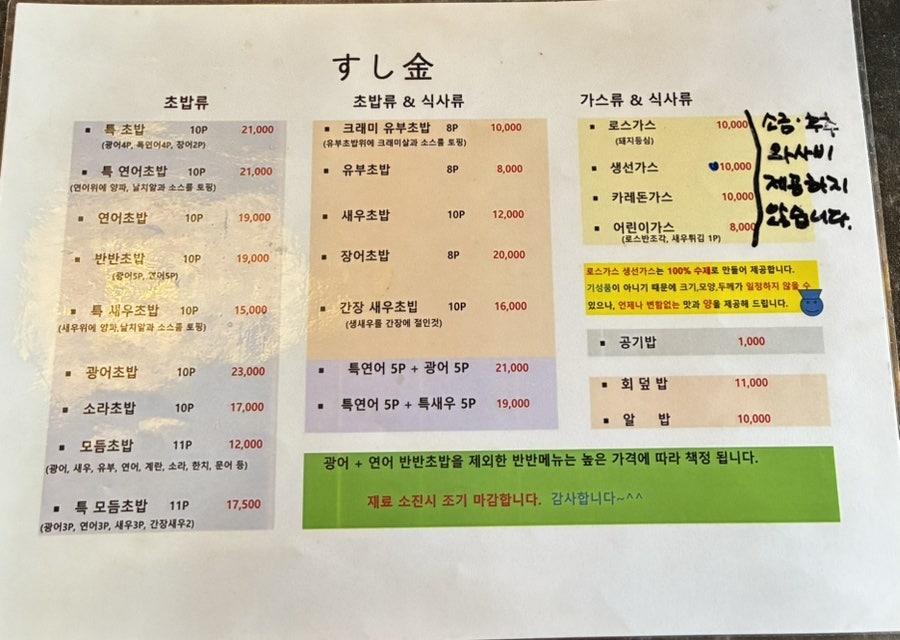 すし金
초밥류
특 초밥 10P 21,000
(광어4P, 특연어4P, 장어2P)
특 연어초밥 10P 21,000
(연어위에 양파, 날치알과 소스를 토핑)
연어초밥 10P 19,000
반반초밥 10P 19,000
(광어5P, 연어5P)
특 새우초밥 10P 15,000
(새우위에 양파,날치알과 소스를 토핑)
광어초밥 10P 23,000
소라초밥 10P 17,000
모듬초밥 11P 12,000
(광어, 새우, 유부, 연어, 계란, 소라, 한치, 문어 등)
특 모듬초밥 11P 17,500
(광어3P, 연어3P, 새우3P, 간장새우2)
초밥류 & 식사류
크래미 유부초밥 8P 10,000
(유부초밥위에 크래미살과 소스를 토핑)
유부초밥 8P 8,000
새우초밥 10P 12,000
장어초밥 8P 20,000
간장 새우초빕 10P 16,000
(생새우를 간장에 절인것)
특연어 5P + 광어 5P 21,000
특연어 5P + 특새우 5P 19,000
가스류 & 식사류
로스가스 10,000
(돼지등심)
생선가스 10,000
카레돈가스 10,000
어린이가스 8,000
(로스반조각, 새우튀김 1P)
소금·후추
와사비
제공하지
않습니다.
로스가스 생선가스는 100% 수제로 만들어 제공합니다.
기성품이 아니기 때문에 크기,모양,두께가 일정하지 않을 수
있으나, 언제나 변함없는 맛과 양을 제공해 드립니다.
공기밥 1,000
회 덮 밥 11,000
알 밥 10,000
광어 + 연어 반반초밥을 제외한 반반메뉴는 높은 가격에 따라 책정 됩니다.
재료 소진시 조기 마감합니다. 감사합니다~^^